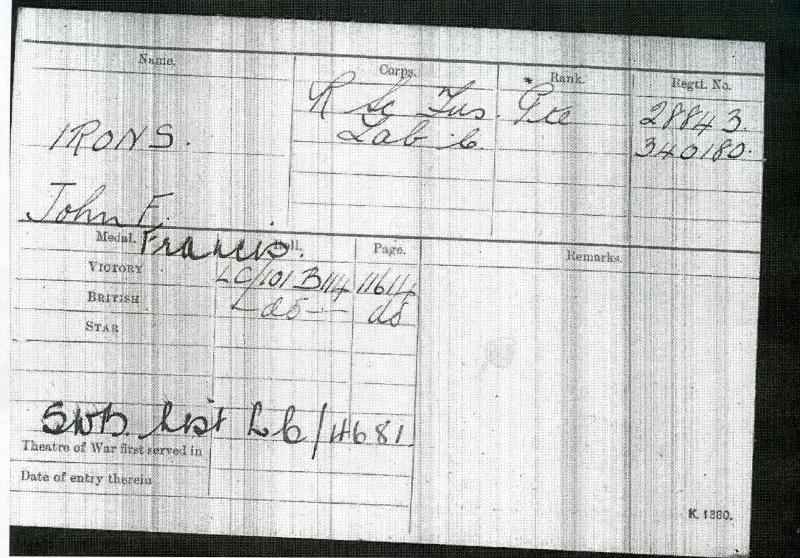 Name. Corps. *Rank. Regtl. No.
R Sc Fus. Pte 28843.
IRONS. Lab C. 340180.
John F.
Francis.
Medal. Roll. Page. Remarks.
VICTORY LC/101 B114 11614
BRITISH —do— do
STAR
SWB List LC/4681
Theatre of War first served in
Date of entry therein
K. 1380.